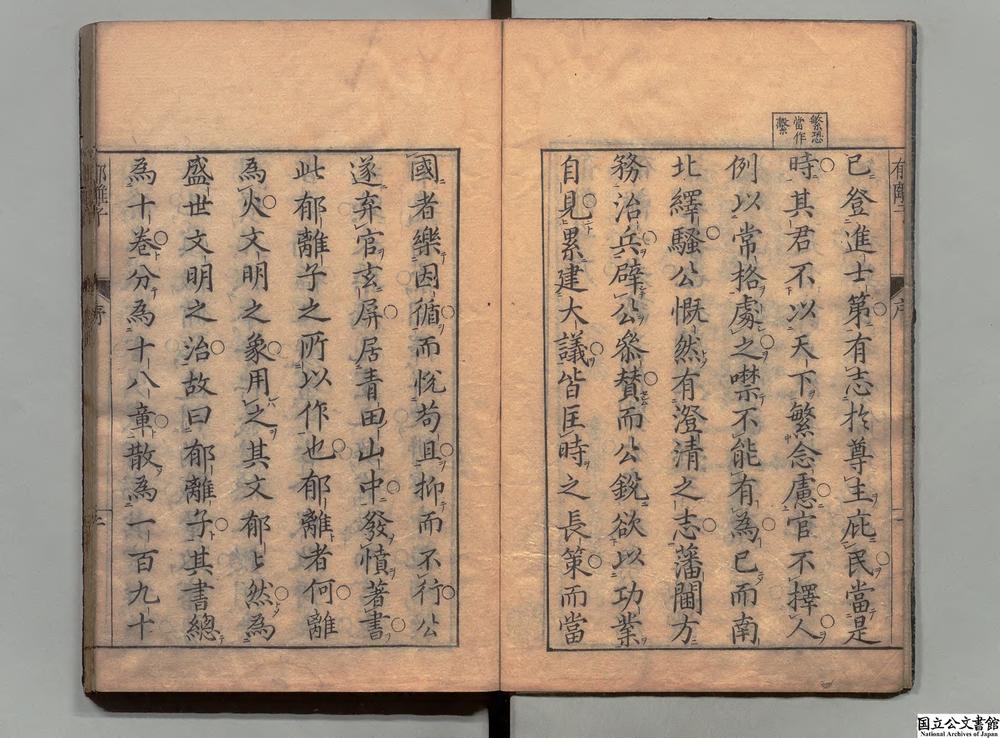 繁恐
當作
繫
已登進士第有志於尊主庇民當是
時其君不以天下繁念慮官不擇人
例以常格處之噤不能有為已而南
北繹騷公慨然有澄清之志藩閫方
務治兵辟公叅賛而公銳欲以功業
自見累建大議皆匡時之長策而當
國者樂因循而恱苟且抑而不行公
遂弃官玄屏居青田山中發憤著書
此郁離子之所以作也郁離者何離
為火文明之象用之其文郁〻然為
盛世文明之治故曰郁離子其書總
為十卷分為十八章散為一百九十
序
国立公文書館
National Archives of Japan